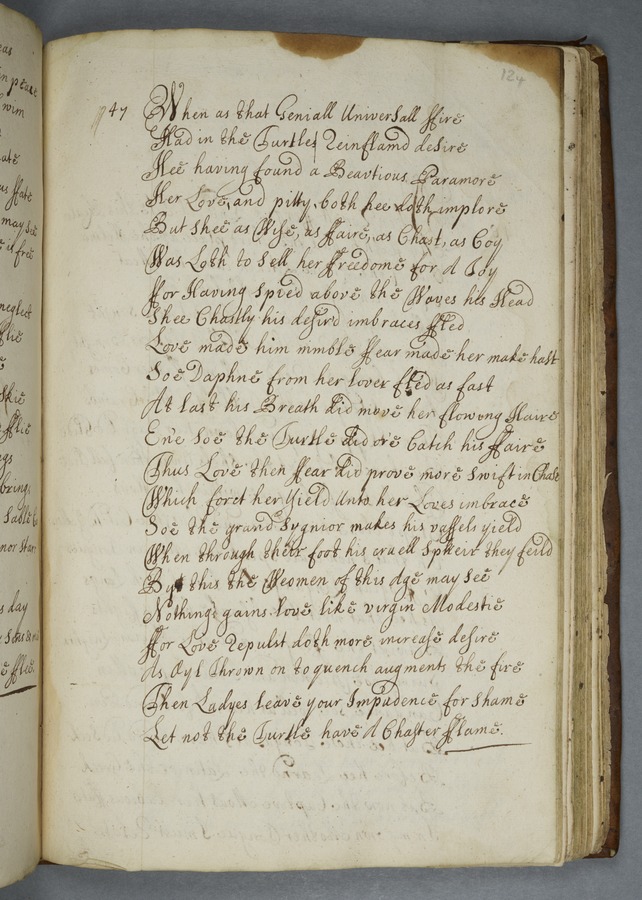 124
47 When as that Geniall Universall ffire
Had in the Turtles Reinflamd desire
Hee having found a Beavtious Paramore
Her Love, and pitty both hee doth implore
But shee as Wise, as ffaire, as Chast, as Coy
Was Loth to sell her ffreedome for A Toy
ffor Having spied above the Waves his Head
Shee Chastly his desird imbraces ffled
Love made him nimble ffear made her make hast
Soe Daphne from her lover fled as fast
At last his Breath did move her flowong Haire
Ene soe the Turtle did ore Catch his ffaire
Thus Love then ffear did prove more swift in Chase
Which forct her Yield Unto her Loves imbrace
Soe the grand Sygnior makes his vassels yield
When through their foot his cruell Speir they feild
By this the Weomen of this Age may see
Nothing gains Love like virgin Modestie
ffor Love Repulst doth more increase desire
As Oyl Thrown on to quench augments the fire
Then Ladyes leave your Impudence for shame
Let not the Turtle have A Chaster fflame.